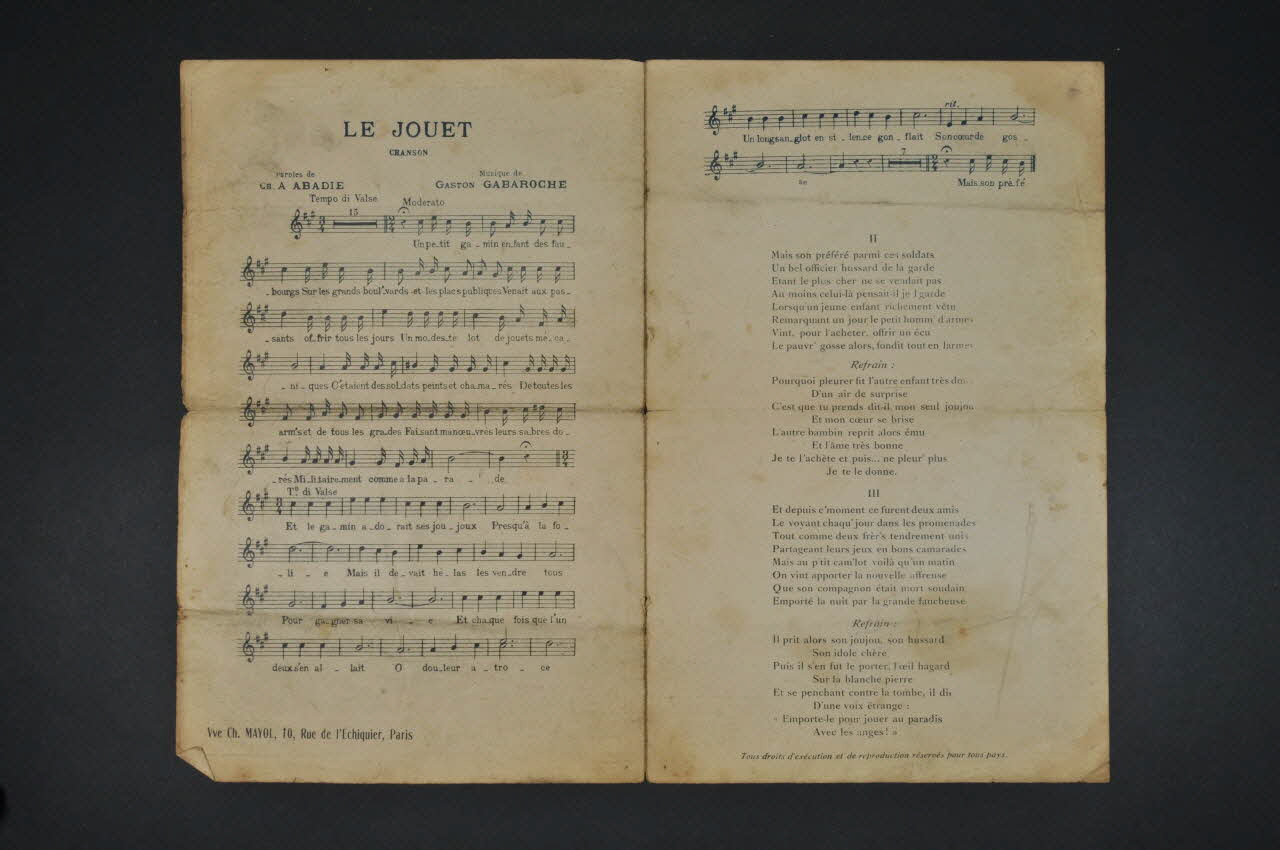 LE JOUET
CHANSON
Paroles de
CH. A ABADIE
Musique de
GASTON GABAROCHE
Tempo di Valse
Moderato
15
Un pe_tit ga_min en_fant des fau_
_bourgs Sur les grands boul'vards et les plac's publiques Venait aux pas_
_sants of_frir tous les jours Un mo_des_te lot de jouets mé_ca_
_ni_ques C'étaient des sol_dats peints et cha_ma_rés De toutes les
arm's et de tous les gra_des Fai_sant manœu_vres leurs sa_bres do_
_rés Mi_li_taire_ment comme a la pa_ra_de
Tº di Valse
Et le ga_min a_do_rait ses jou_joux Presqu'à la fo_
_li_e Mais il de_vait hé_las les ven_dre tous
Pour ga_gner sa vi_e Et cha_que fois que l'un
deux s'en al_lait O dou_leur a_tro_ce
Vve Ch. MAYOL, 10, Rue de l'Echiquier, Paris
rit.
Un long san_glot en si_len_ce gon_flait Son cœur de gos_
7
se Mais son pré_fé
II
Mais son préféré parmi ces soldats
Un bel officier hussard de la garde
Etant le plus cher ne se vendait pas
Au moins celui-là pensait-il je l'garde
Lorsqu'un jeune enfant richement vêtu
Remarquant un jour le petit homm' d'armes
Vint, pour l'acheter, offrir un écu
Le pauvr' gosse alors, fondit tout en larmes
Refrain :
Pourquoi pleurer fit l'autre enfant très
D'un air de surprise
C'est que tu prends dit-il mon seul joujou
Et mon cœur se brise
L'autre bambin reprit alors ému
Et l'âme très bonne
Je te l'achète et puis... ne pleur' plus
Je te le donne.
III
Et depuis c'moment ce furent deux amis
Le voyant chaqu' jour dans les promenades
Tout comme deux frèr's tendrement unis
Partageant leurs jeux en bons camarades
Mais au p'tit cam'lot voilà qu'un matin
On vint apporter la nouvelle affreuse
Que son compagnon était mort soudain
Emporté la nuit par la grande faucheuse
Refrain :
Il prit alors son joujou, son hussard
Son idole chère
Puis il s'en fut le porter, l'œil hagard
Sur la blanche pierre
Et se penchant contre la tombe, il dit
D'une voix étrange :
« Emporte-le pour jouer au paradis
Avec les anges ! »
Tous droits d'exécution et de reproduction réservés pour tous pays.